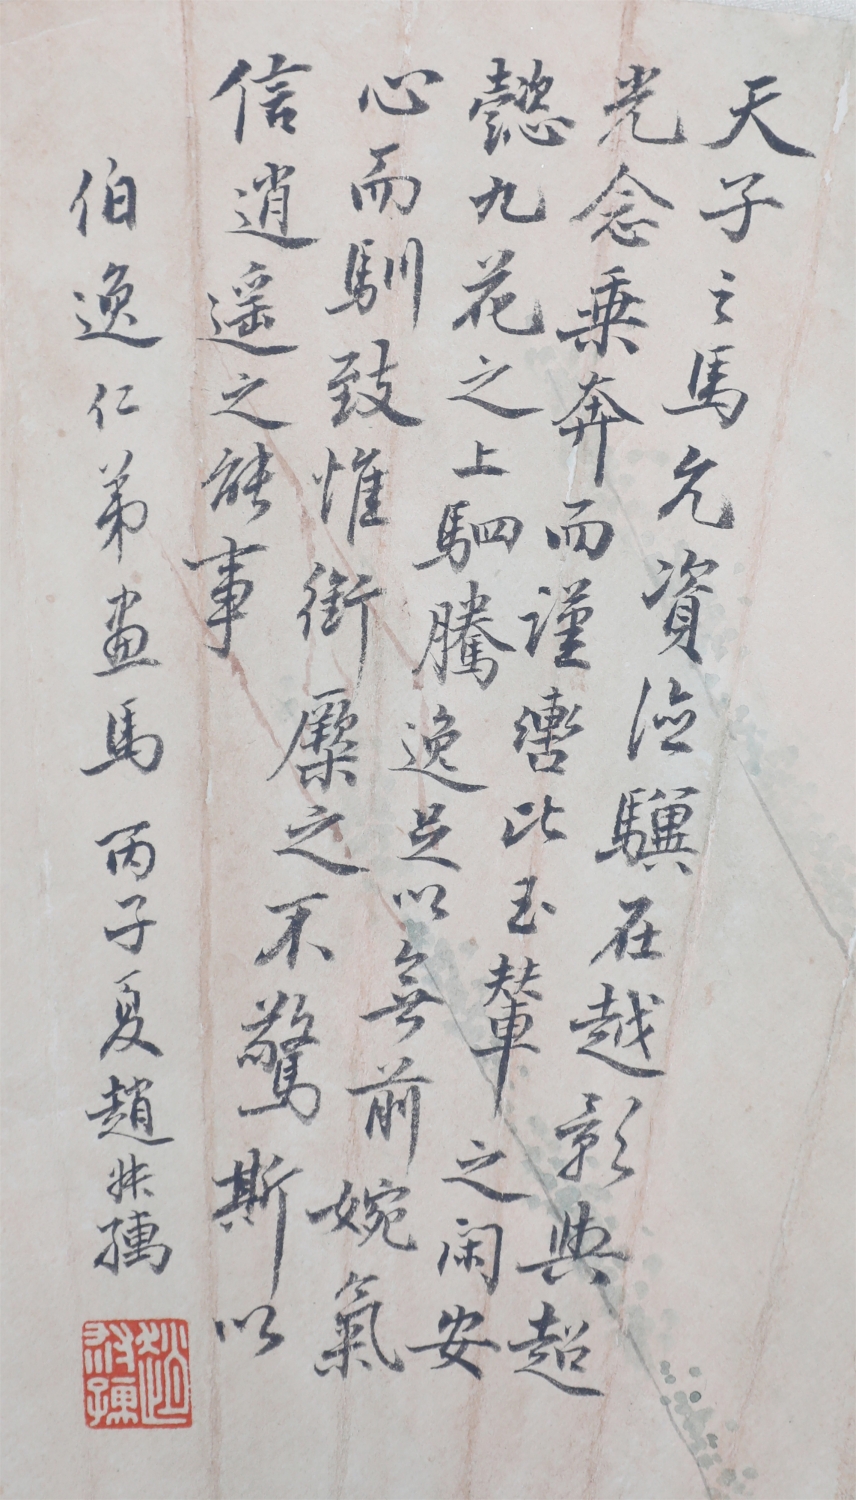 天子之馬允資德驥在越彰典超
光念乘奔而謹轡比玉輦之閑安
懿九花之上駟騰逸足以無前婉氣
心而馴致惟銜橜之不驚斯以
信逍遥之能事
伯逸仁弟畫馬 丙子夏趙叔孺
趙叔孺